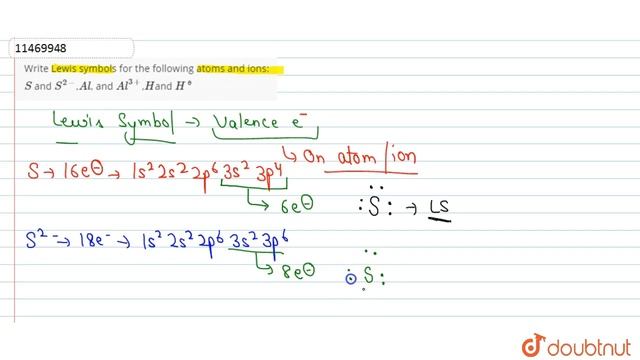 11469948
Write Lewis symbols for the following atoms and ions:
S and S²⁻.Al, and Al³⁺,H and H^⊖
Lewis Symbol → Valence e⁻
↳ On atom/ion
S → 16e⊖ → 1s² 2s² 2p⁶ 3s² 3p⁴
↳ 6e⊖
:S: → LS
S²⁻ → 18e⁻ → 1s² 2s² 2p⁶ 3s² 3p⁶
↳ 8e⊖
S:
doubtnut